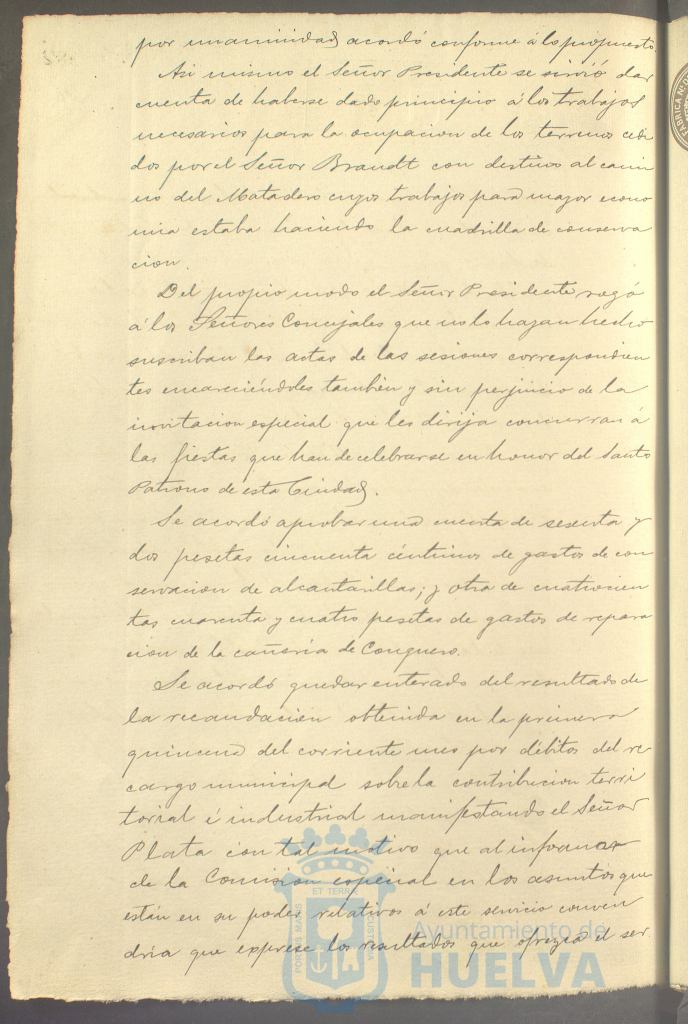 por unanimidad acordó conforme á lo propuesto.
Asi mismo el Señor Presidente se sirvió dar
cuenta de haberse dado principio á los trabajos
necesarios para la ocupacion de los terrenos cedi
dos por el Señor Brandt con destino al cami
no del Matadero cuyos trabajos para mayor econo
mia estaba haciendo la cuadrilla de conserva
cion.
Del propio modo el Señor Presidente rogó
á los Señores Concejales que no lo hayan hecho
suscriban las actas de las sesiones correspondien
tes encareciéndoles tambien y sin perjuicio de la
invitacion especial que les dirija concurran á
las fiestas que han de celebrarse en honor del Santo
Patrono de esta Ciudad.
Se acordó aprobar una cuenta de sesenta y
dos pesetas cincuenta céntimos de gastos de con
servacion de alcantarillas; y otra de cuatrocien
tas cuarenta y cuatro pesetas de gastos de repara
cion de la cañería de Conquero.
Se acordó quedar enterado del resultado de
la recaudacion obtenida en la primera
quincena del corriente mes por débitos del re
cargo municipal sobre la contribucion terri
torial é industrial manifestando el Señor
Plata con tal motivo que al informar
de la Comision especial en los asuntos que
están en su poder relativos á este servicio conven
dria que exprese los resultados que ofrezca el ser
Ayuntamiento de
HUELVA